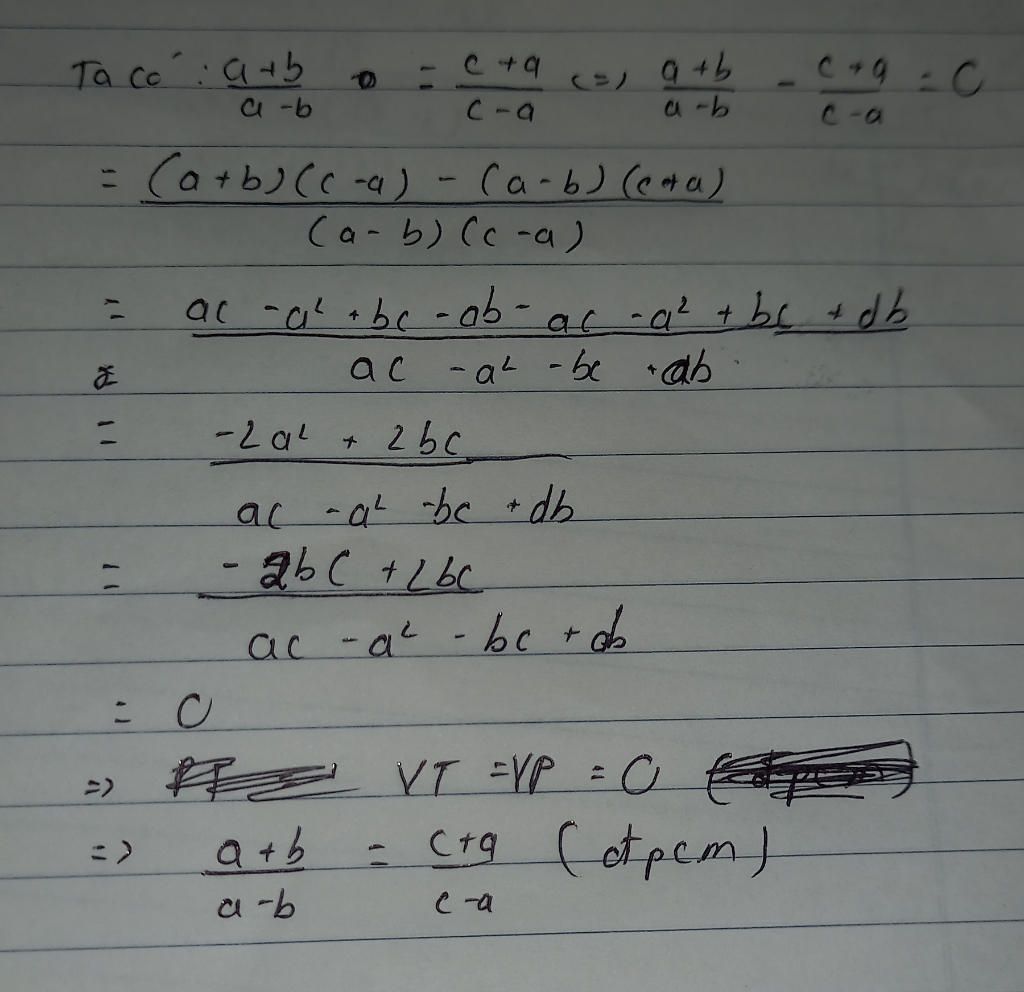 Ta có : a+b/a-b = c+a/c-a <=> a+b/a-b - c+a/c-a = 0
= (a+b)(c-a) - (a-b)(c+a)/(a-b)(c-a)
= ac - a² + bc - ab - ac - a² + bc + ab/ac - a² - bc + ab
= -2a² + 2bc/ac - a² - bc + ab
= -2bc + 2bc/ac - a² - bc + ab
= 0
=> VT = VP = 0
=> a+b/a-b = c+a/c-a (đpcm)